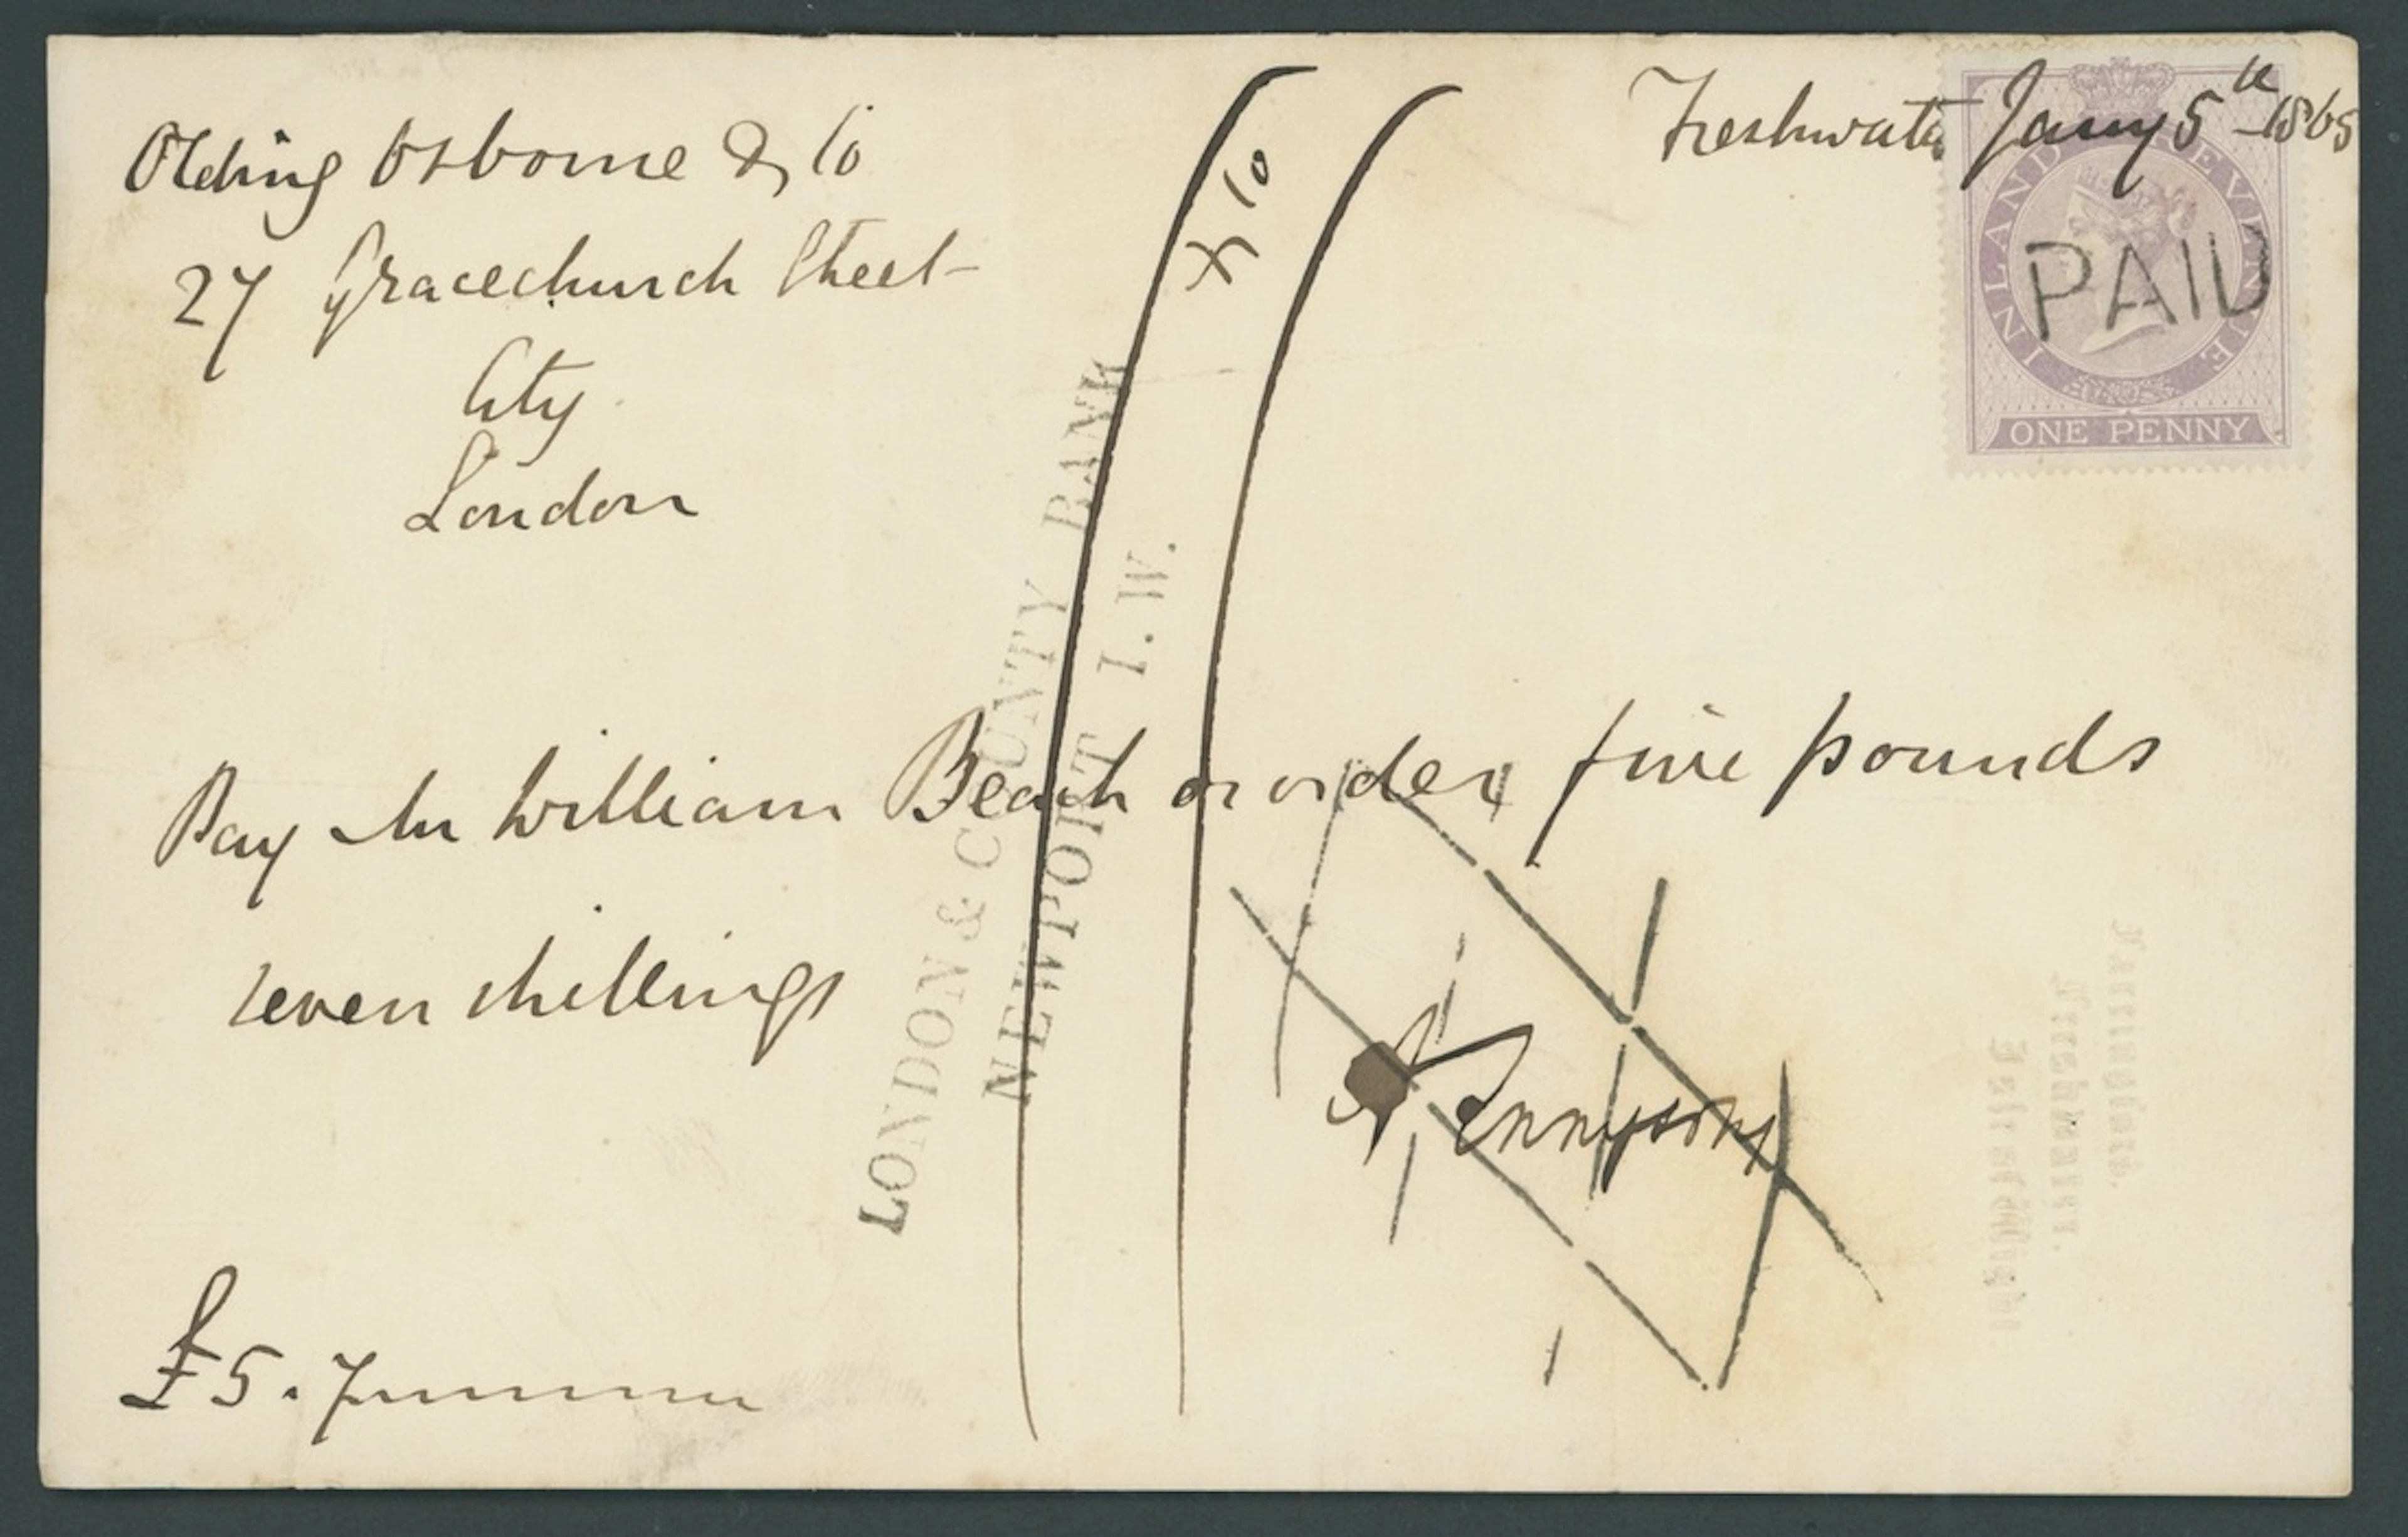 Freshwater Jany 5th 1865
Olding Osborne & Co
27 Gracechurch Street
City
London
& Co
INLAND REVENUE
PAID
ONE PENNY
LONDON & COUNTY BANK
NEWPORT I.W.
Pay Mr William Beach or order five pounds
seven shillings
A Tennyson
£5.7